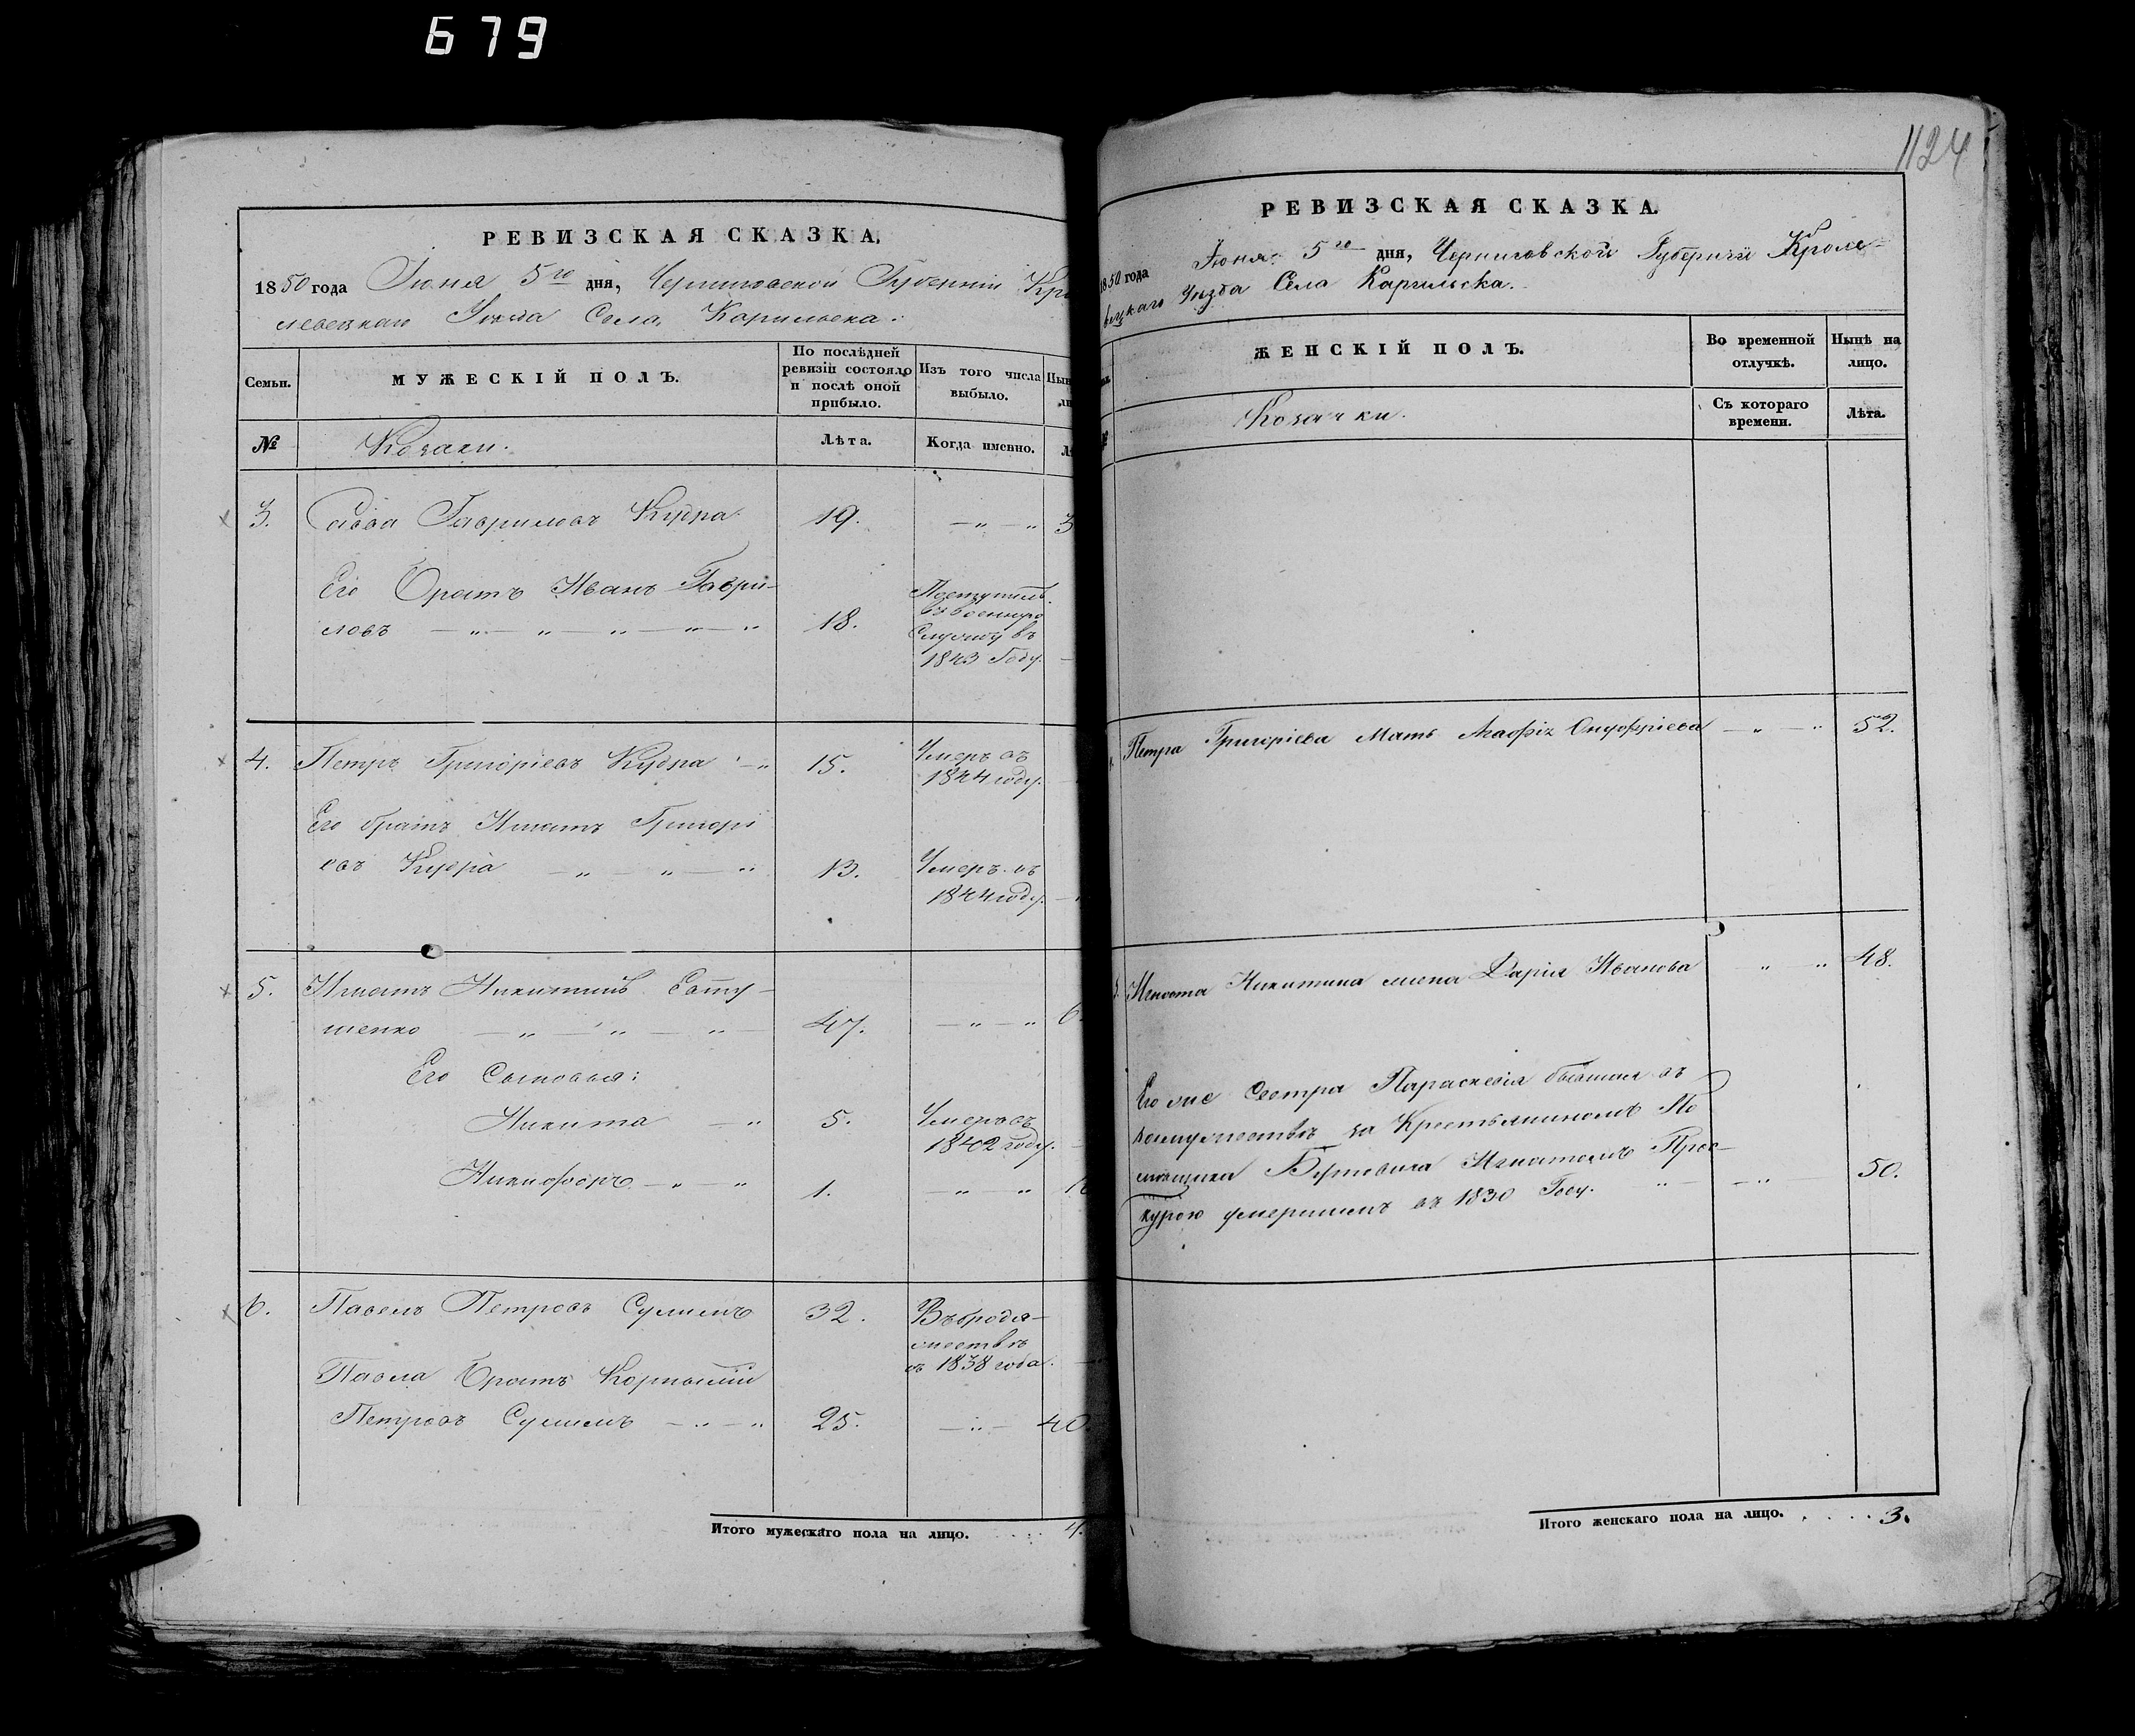 679
РЕВИЗСКАЯ СКАЗКА.
1850 года Июня 5го дня, Черниговской Губерніи Кро
левецкаго Уезда Села Карильска.
Семьи.
МУЖЕСКІЙ ПОЛЪ.
По послѣдней
ревизіи состояло
и послѣ оной
прибыло.
Изъ того числа
выбыло.
№
Козаки.
Лѣта.
Когда именно.
3. Савва Гавриловъ Кудра 19. — „ — „ 3
Его Братъ Иванъ Гаври-
ловъ — „ — „ — „ — „ — „ 18.
Поступилъ
въ военную
Службу въ
1843 Году.
4. Петръ Григоріевъ Кудра — „ 15.
Умеръ въ
1844 году.
Его братъ Игнатъ Григорі
евъ Кудра — „ — „ — „ 13.
Умеръ въ
1844 году.
5. Игнатъ Никитинъ
шенко — „ — „ — „ 47. — „ — „ 6
Его Сыновья:
Никита — „ 5.
Умеръ въ
1842 году.
Никифоръ — „ — „ 1. — „ — „ 1
6. Павелъ Петровъ 32.
Въ бродя-
жествѣ
съ 1838 года.
Павла Братъ Корнилій
Петровъ — „ — „ 25. — „ — 40.
Итого мужескаго пола на лицо. . . . . 4.
1124
РЕВИЗСКАЯ СКАЗКА.
1850 года Июня 5го дня, Черниговской Губерніи Кроле-
вецкаго Уезда Села Карильска.
ЖЕНСКІЙ ПОЛЪ.
Во временной
отлучкѣ.
Нынѣ на
лицо.
Козачки.
Съ котораго
времени.
Лѣта.
Петра Григоріева Мать Агафія Онуфріева — „ — „ 52.
5. Игната Никитина жена Дарія Иванова „ „ 48.
Его же Сестра Параскевія бывшая въ
замужествѣ за Крестьяниномъ По
мѣщика Игнатомъ Прос-
курою умершимъ въ 1830 Году. „ — „ — 50.
Итого женскаго пола на лицо. . . . . 3.